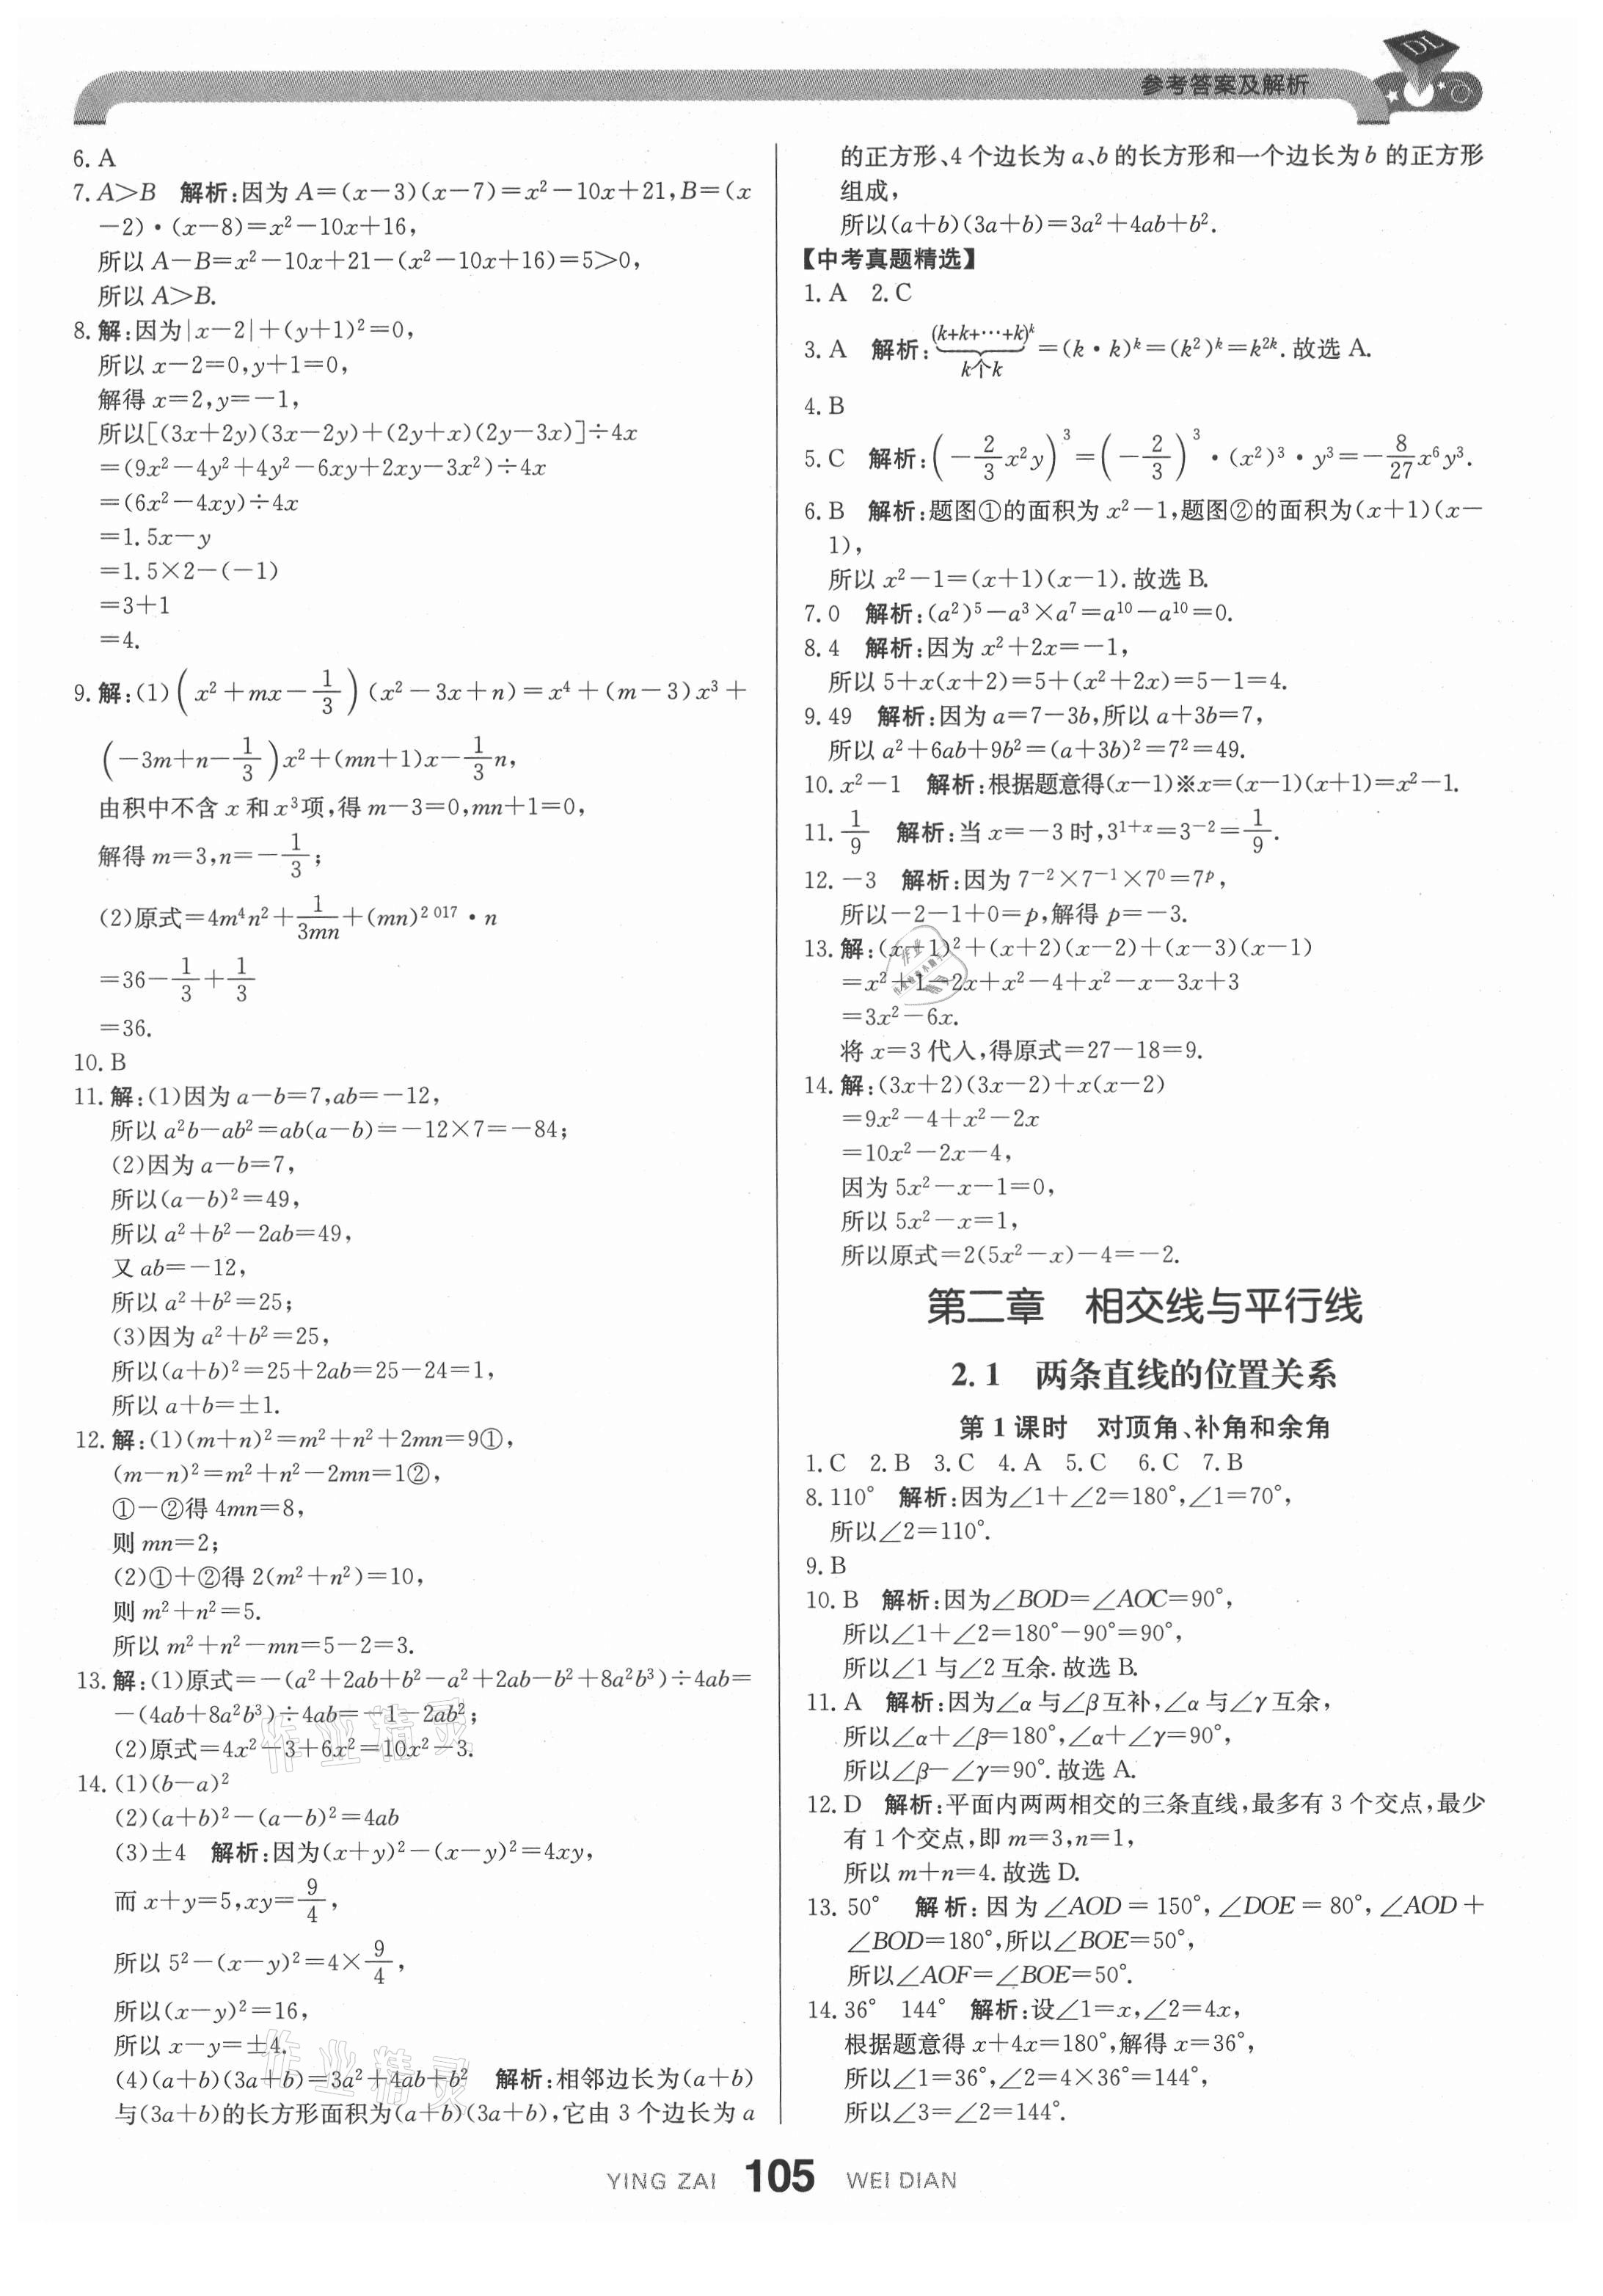 参考答案及解析
DL
6. A
7. A＞B 解析:因为 A=(x-3)(x-7)=x²-10x+21,B=(x
-2)·(x-8)=x²-10x+16,
所以 A-B=x²-10x+21-(x²-10x+16)=5>0,
所以 A＞B.
8. 解:因为|x-2|+(y+1)²=0,
所以 x-2=0,y+1=0,
解得 x=2,y=-1,
所以[(3x+2y)(3x-2y)+(2y+x)(2y-3x)]÷4x
=(9x²-4y²+4y²-6xy+2xy-3x²)÷4x
=(6x²-4xy)÷4x
=1.5x-y
=1.5×2-(-1)
=3+1
=4.
9. 解:(1)(x²+mx-1/3)(x²-3x+n)=x⁴+(m-3)x³+
(-3m+n-1/3)x²+(mn+1)x-1/3n,
由积中不含 x 和 x³项,得 m-3=0,mn+1=0,
解得 m=3,n=-1/3;
(2)原式=4m⁴n²+1/3mn+(mn)²⁰¹⁷·n
=36-1/3+1/3
=36.
10. B
11. 解:(1)因为 a-b=7,ab=-12,
所以 a²b-ab²=ab(a-b)=-12×7=-84;
(2)因为 a-b=7,
所以(a-b)²=49,
所以 a²+b²-2ab=49,
又 ab=-12,
所以 a²+b²=25;
(3)因为 a²+b²=25,
所以(a+b)²=25+2ab=25-24=1,
所以 a+b=±1.
12. 解:(1)(m+n)²=m²+n²+2mn=9①,
(m-n)²=m²+n²-2mn=1②,
①-②得 4mn=8,
则 mn=2;
(2)①+②得 2(m²+n²)=10,
则 m²+n²=5.
所以 m²+n²-mn=5-2=3.
13. 解:(1)原式=-(a²+2ab+b²-a²+2ab-b²+8a²b³)÷4ab=
-(4ab+8a²b³)÷4ab=-1-2ab²;
(2)原式=4x²-3+6x²=10x²-3.
14. (1)(b-a)²
(2)(a+b)²-(a-b)²=4ab
(3)±4 解析:因为(x+y)²-(x-y)²=4xy,
而 x+y=5,xy=9/4,
所以 5²-(x-y)²=4×9/4,
所以(x-y)²=16,
所以 x-y=±4.
(4)(a+b)(3a+b)=3a²+4ab+b² 解析:相邻边长为(a+b)
与(3a+b)的长方形面积为(a+b)(3a+b),它由 3 个边长为 a
的正方形、4 个边长为 a、b 的长方形和一个边长为 b 的正方形
组成,
所以(a+b)(3a+b)=3a²+4ab+b².
【中考真题精选】
1. A 2. C
3. A 解析:(k+k+…+k)ᵏ=(k·k)ᵏ=(k²)ᵏ=k²ᵏ.故选 A.
k个k
4. B
5. C 解析:(-2/3x²y)³=(-2/3)³·(x²)³·y³=-8/27x⁶y³.
6. B 解析:题图①的面积为 x²-1,题图②的面积为(x+1)(x-
1),
所以 x²-1=(x+1)(x-1).故选 B.
7. 0 解析:(a²)⁵-a³×a⁷=a¹⁰-a¹⁰=0.
8. 4 解析:因为 x²+2x=-1,
所以 5+x(x+2)=5+(x²+2x)=5-1=4.
9. 49 解析:因为 a=7-3b,所以 a+3b=7,
所以 a²+6ab+9b²=(a+3b)²=7²=49.
10. x²-1 解析:根据题意得(x-1)※x=(x-1)(x+1)=x²-1.
11. 1/9 解析:当 x=-3 时,3¹⁺ˣ=3⁻²=1/9.
12. -3 解析:因为 7⁻²×7⁻¹×7⁰=7ᵖ,
所以-2-1+0=p,解得 p=-3.
13. 解:(x-1)²+(x+2)(x-2)+(x-3)(x-1)
=x²+1-2x+x²-4+x²-x-3x+3
=3x²-6x.
将 x=3 代入,得原式=27-18=9.
14. 解:(3x+2)(3x-2)+x(x-2)
=9x²-4+x²-2x
=10x²-2x-4,
因为 5x²-x-1=0,
所以 5x²-x=1,
所以原式=2(5x²-x)-4=-2.
第二章 相交线与平行线
2.1 两条直线的位置关系
第 1 课时 对顶角、补角和余角
1. C 2. B 3. C 4. A 5. C 6. C 7. B
8. 110° 解析:因为∠1+∠2=180°,∠1=70°,
所以∠2=110°.
9. B
10. B 解析:因为∠BOD=∠AOC=90°,
所以∠1+∠2=180°-90°=90°,
所以∠1 与∠2 互余.故选 B.
11. A 解析:因为∠α 与∠β 互补,∠α 与∠γ 互余,
所以∠α+∠β=180°,∠α+∠γ=90°,
所以∠β-∠γ=90°.故选 A.
12. D 解析:平面内两两相交的三条直线,最多有 3 个交点,最少
有 1 个交点,即 m=3,n=1,
所以 m+n=4.故选 D.
13. 50° 解析:因为∠AOD=150°,∠DOE=80°,∠AOD+
∠BOD=180°,所以∠BOE=50°,
所以∠AOF=∠BOE=50°.
14. 36° 144° 解析:设∠1=x,∠2=4x,
根据题意得 x+4x=180°,解得 x=36°,
所以∠1=36°,∠2=4×36°=144°,
所以∠3=∠2=144°.
作业精灵
作业精灵
YING ZAI 105 WEI DIAN